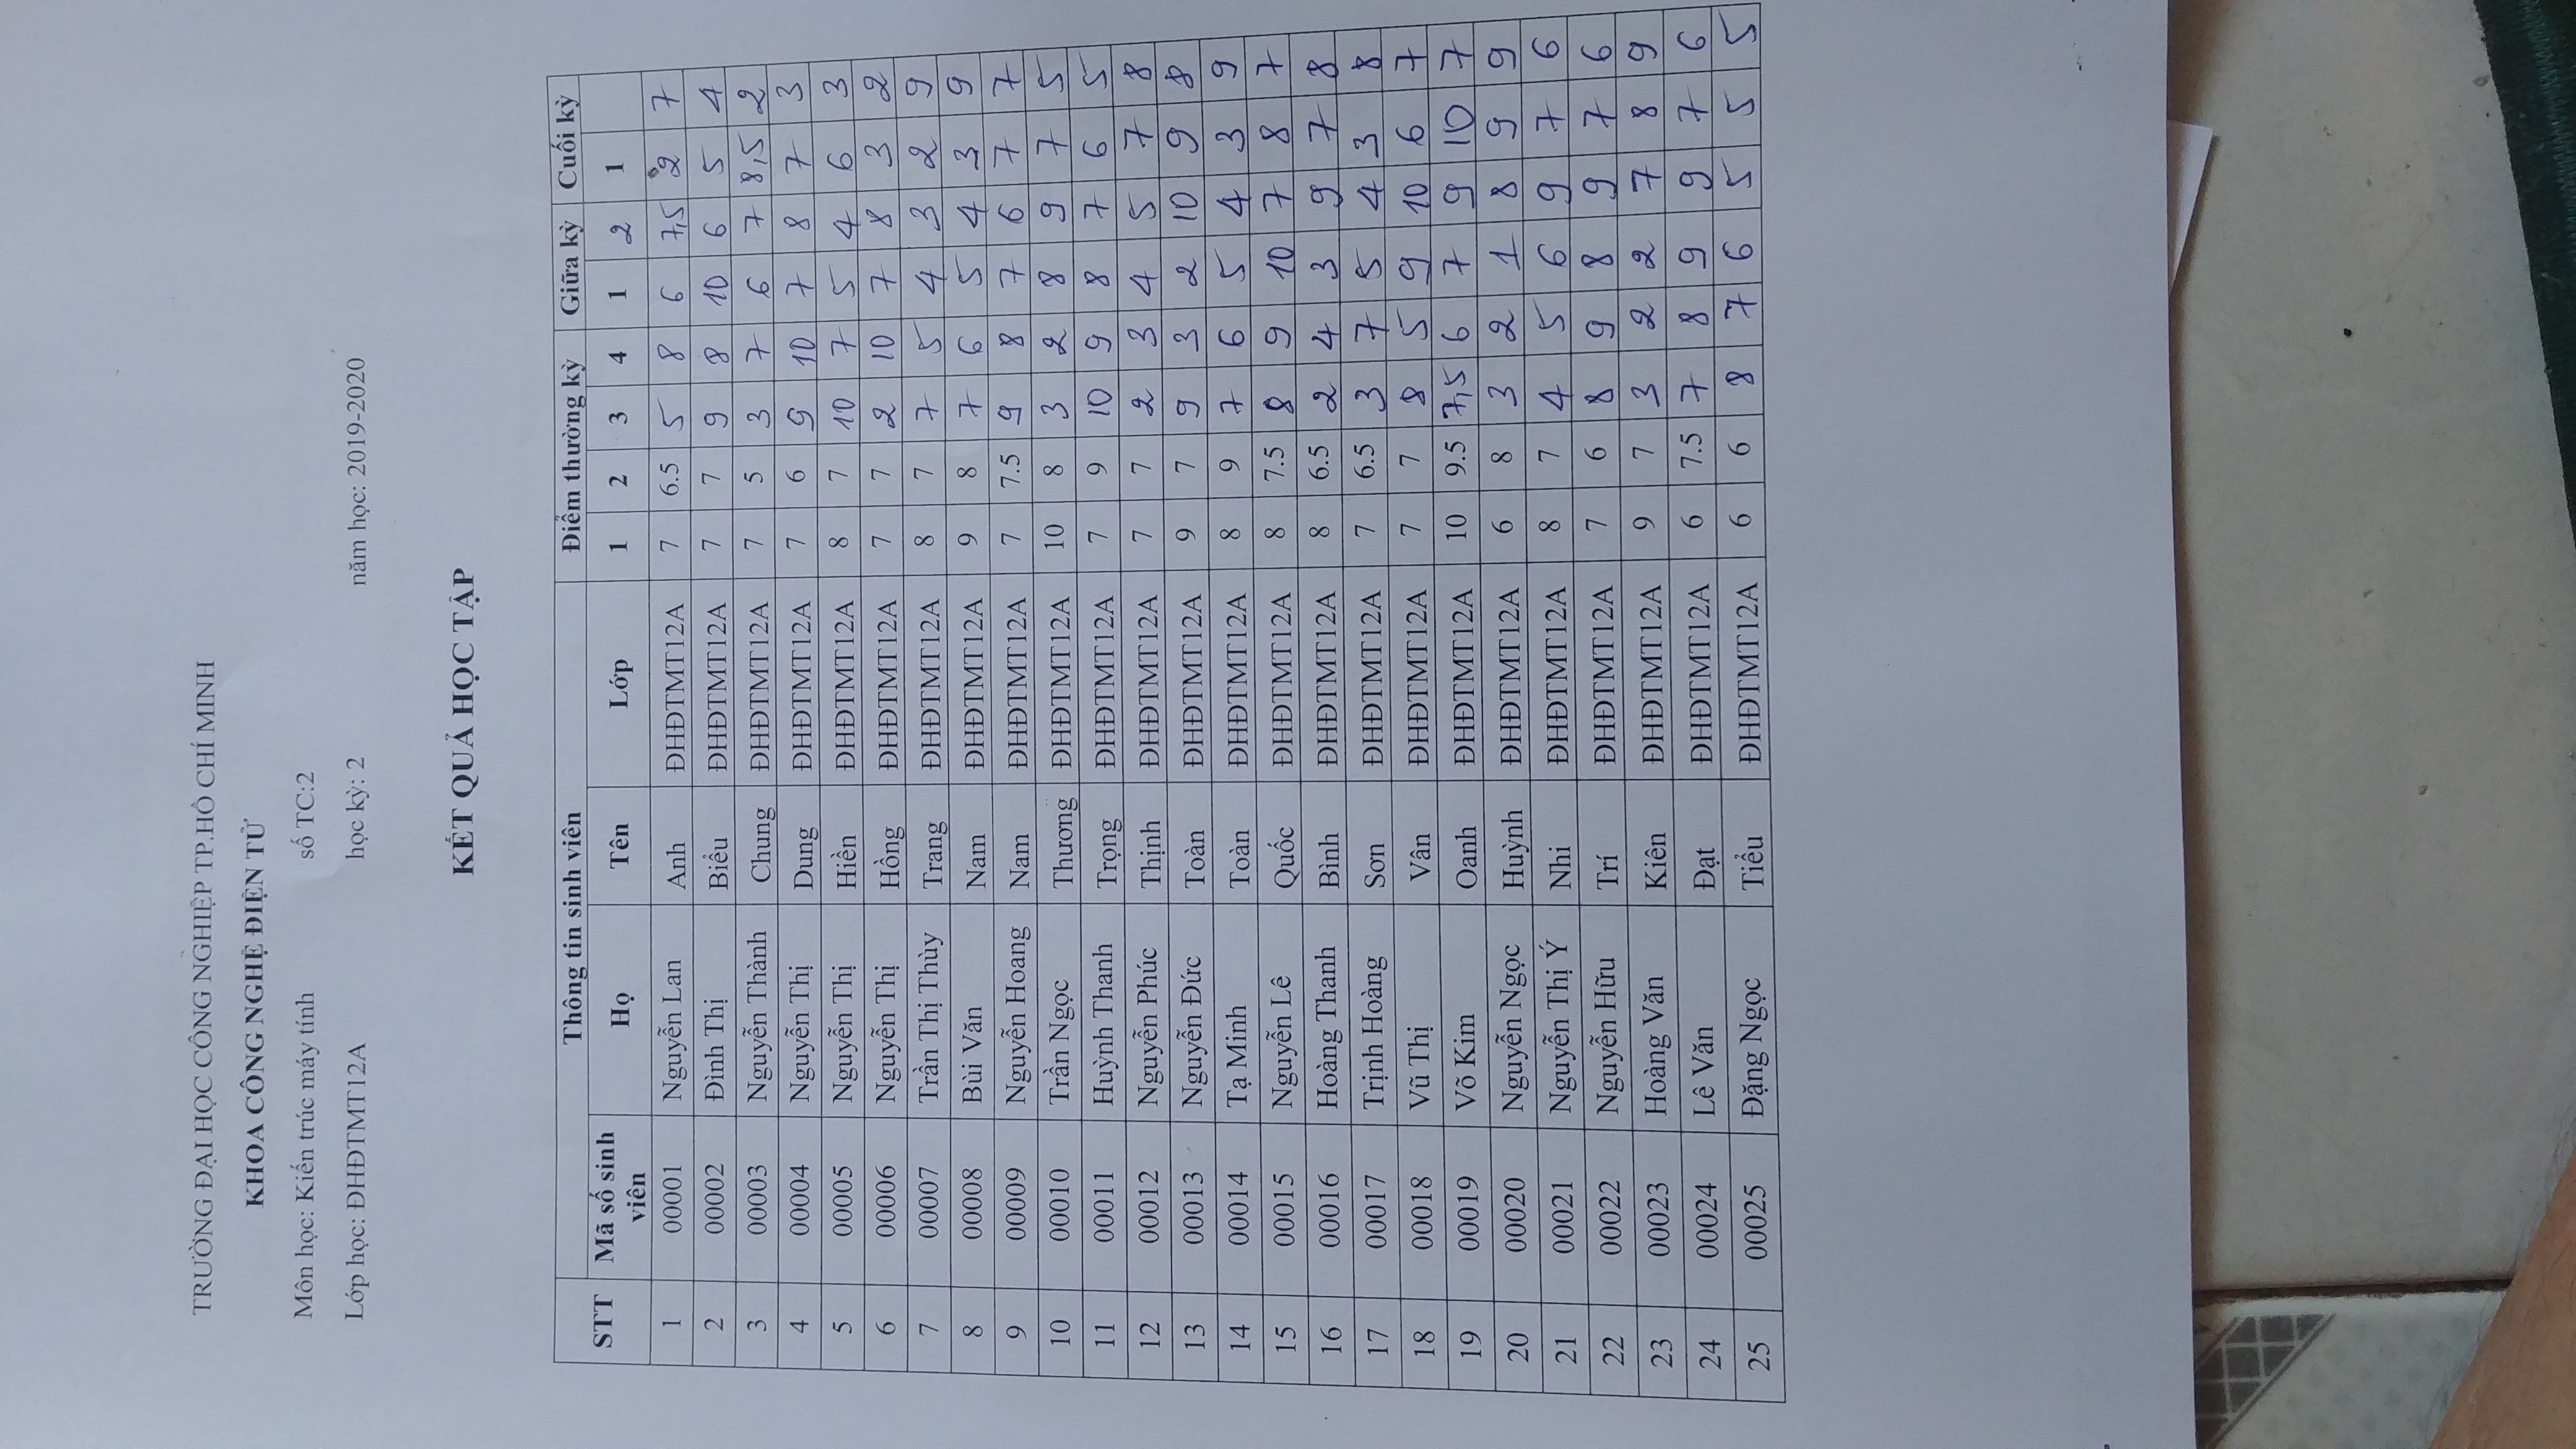 TRƯỜNG ĐẠI HỌC CÔNG NGHIỆP TP.HỒ CHÍ MINH
KHOA CÔNG NGHỆ ĐIỆN TỬ
Môn học: Kiến trúc máy tính số TC:2
Lớp học: ĐHĐTMT12A học kỳ: 2 năm học: 2019-2020
KẾT QUẢ HỌC TẬP
STT Thông tin sinh viên Điểm thường kỳ Giữa kỳ Cuối kỳ
Mã số sinh viên Họ Tên Lớp 1 2 3 4 1 2 1
1 00001 Nguyễn Lan Anh ĐHĐTMT12A 7 6.5 5 8 6 7,5 2 7
2 00002 Đình Thị Biểu ĐHĐTMT12A 7 7 9 8 10 6 5 4
3 00003 Nguyễn Thành Chung ĐHĐTMT12A 7 5 3 7 6 7 8,5 2
4 00004 Nguyễn Thị Dung ĐHĐTMT12A 7 6 9 10 7 8 7 3
5 00005 Nguyễn Thị Hiền ĐHĐTMT12A 8 7 10 7 5 4 6 3
6 00006 Nguyễn Thị Hồng ĐHĐTMT12A 7 7 2 10 7 8 3 2
7 00007 Trần Thị Thùy Trang ĐHĐTMT12A 8 7 7 5 4 3 2 9
8 00008 Bùi Văn Nam ĐHĐTMT12A 9 8 7 6 5 4 3 9
9 00009 Nguyễn Hoang Nam ĐHĐTMT12A 7 7.5 9 8 7 6 7 7
10 00010 Trần Ngọc Thương ĐHĐTMT12A 10 8 3 2 8 9 7 5
11 00011 Huỳnh Thanh Trọng ĐHĐTMT12A 7 9 10 9 8 7 6 5
12 00012 Nguyễn Phúc Thịnh ĐHĐTMT12A 7 7 2 3 4 5 7 8
13 00013 Nguyễn Đức Toàn ĐHĐTMT12A 9 7 9 3 2 10 9 8
14 00014 Tạ Minh Toàn ĐHĐTMT12A 8 9 7 6 5 4 3 9
15 00015 Nguyễn Lê Quốc ĐHĐTMT12A 8 7.5 8 9 10 7 8 7
16 00016 Hoàng Thanh Bình ĐHĐTMT12A 8 6.5 2 4 3 9 7 8
17 00017 Trịnh Hoàng Sơn ĐHĐTMT12A 7 6.5 3 7 5 4 3 8
18 00018 Vũ Thị Vân ĐHĐTMT12A 7 7 8 5 9 10 6 7
19 00019 Võ Kim Oanh ĐHĐTMT12A 10 9.5 7,5 6 7 9 10 7
20 00020 Nguyễn Ngọc Huỳnh ĐHĐTMT12A 6 8 3 2 1 8 9 9
21 00021 Nguyễn Thị Ý Nhi ĐHĐTMT12A 8 7 4 5 6 9 7 6
22 00022 Nguyễn Hữu Trí ĐHĐTMT12A 7 6 8 9 8 9 7 6
23 00023 Hoàng Văn Kiên ĐHĐTMT12A 9 7 3 2 2 7 8 9
24 00024 Lê Văn Đạt ĐHĐTMT12A 6 7.5 7 8 9 9 7 6
25 00025 Đặng Ngọc Tiểu ĐHĐTMT12A 6 6 8 7 6 5 5 5